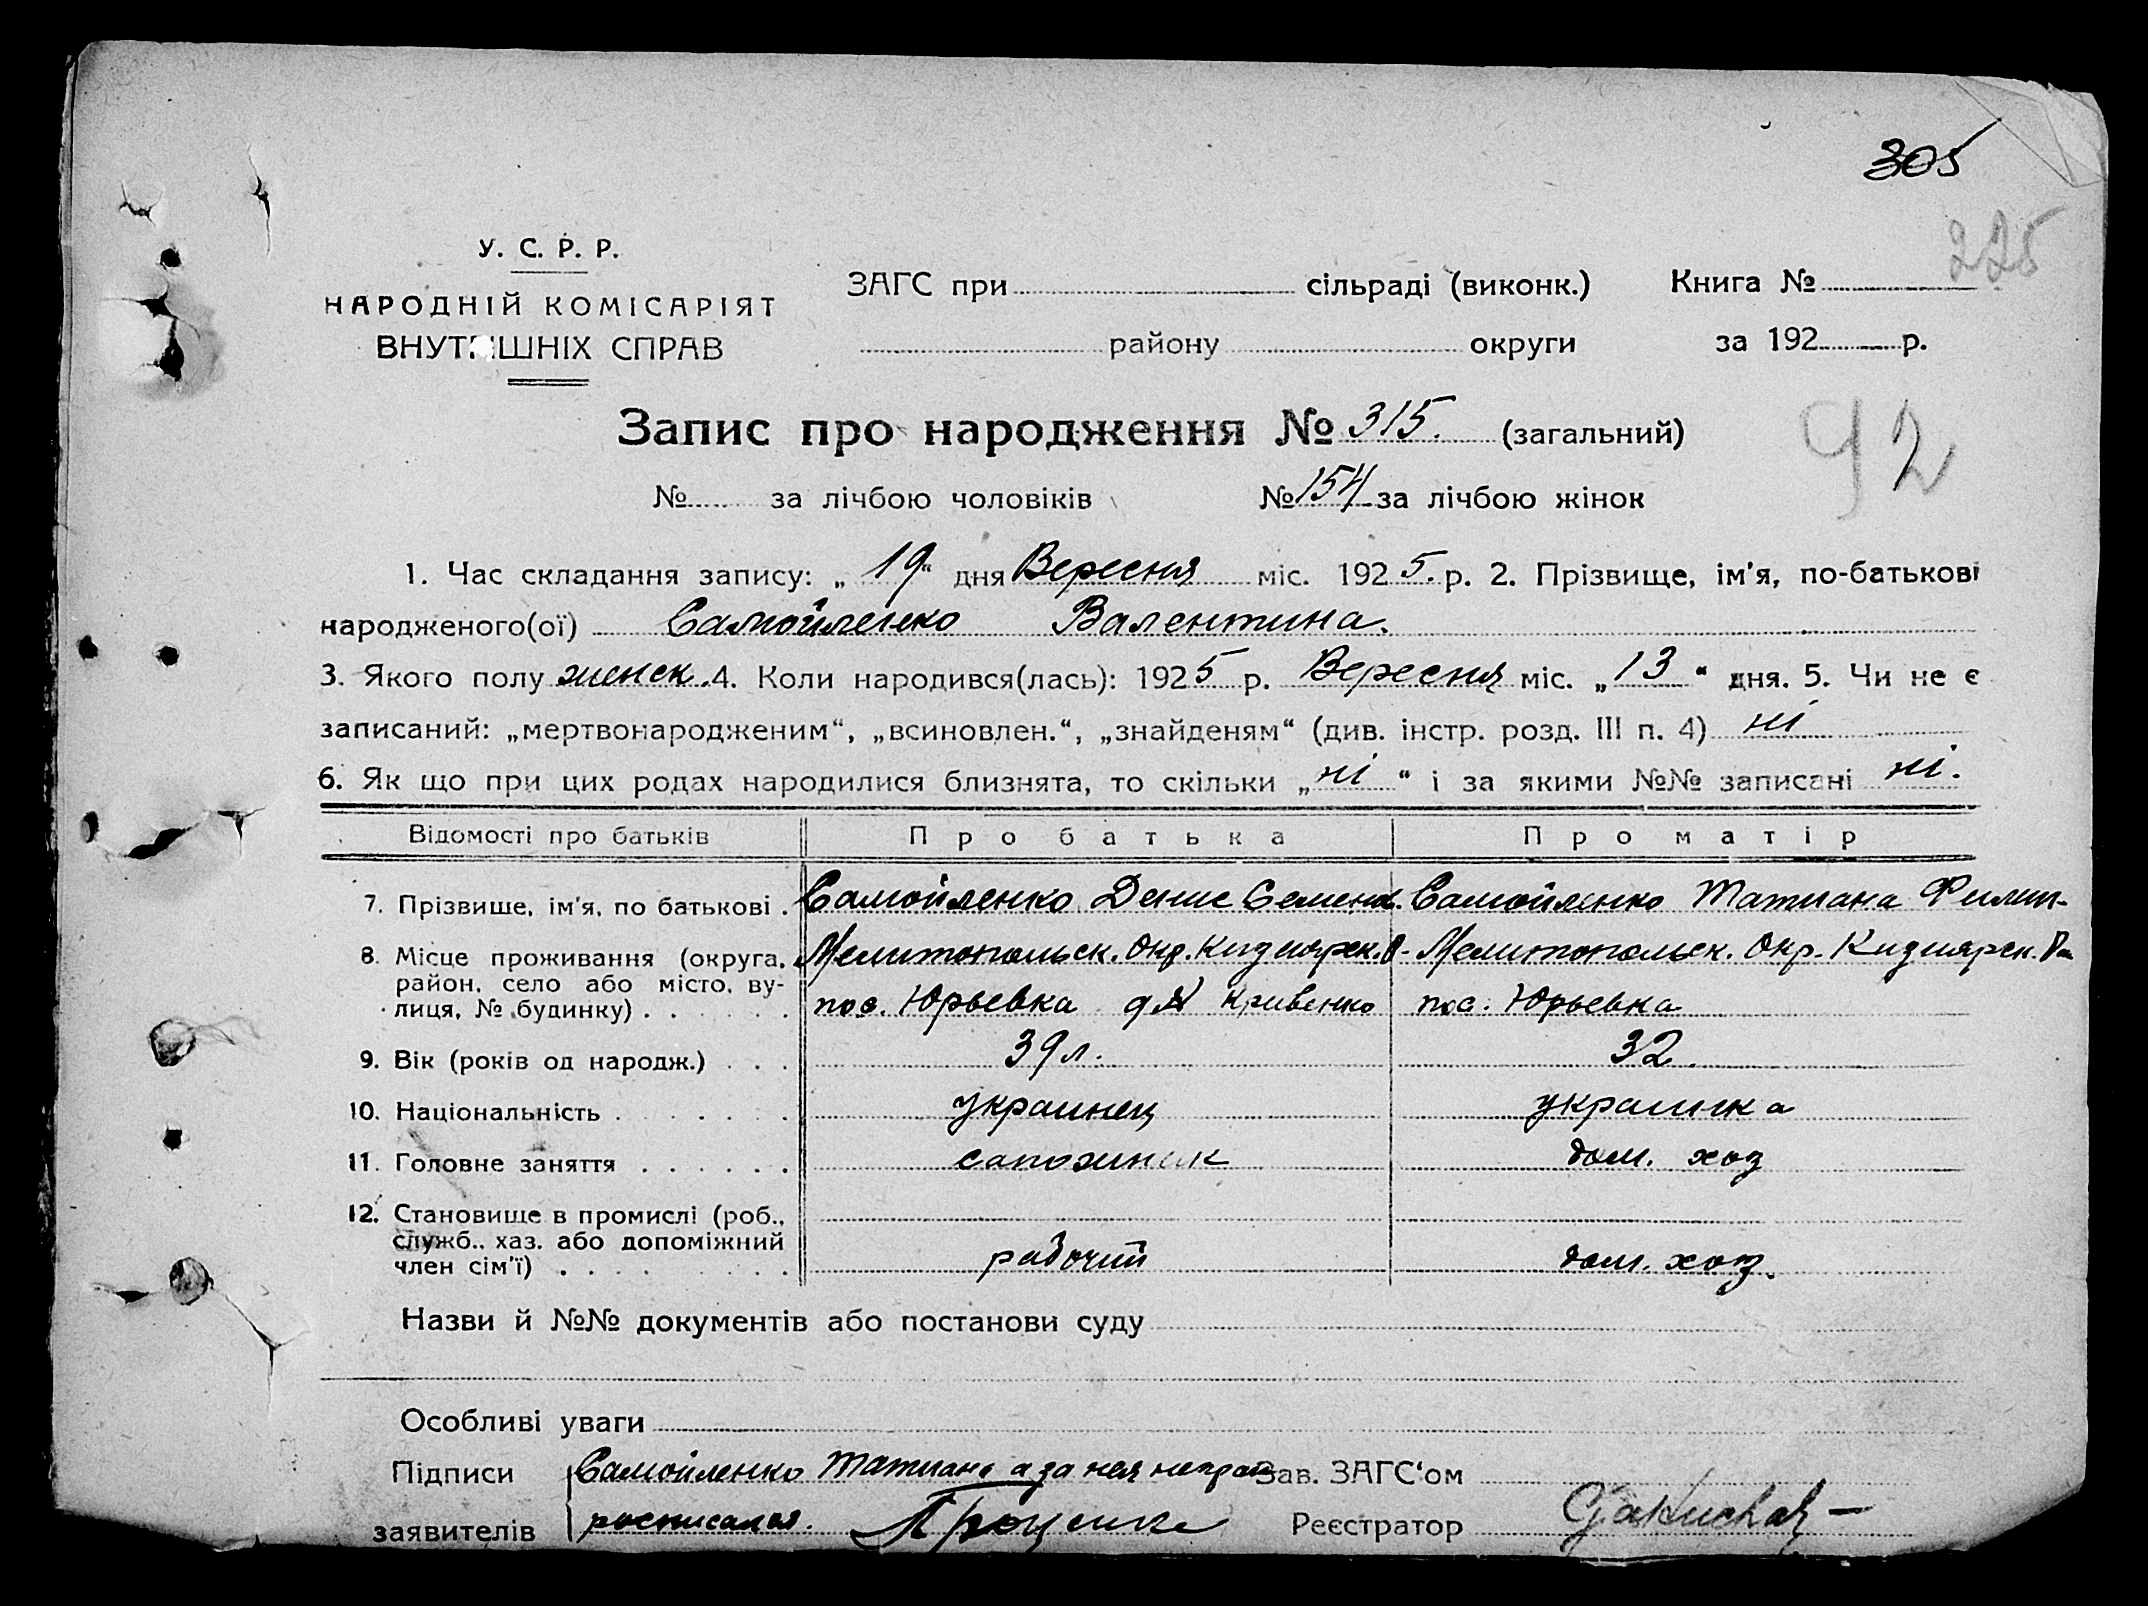 305
225
У. С. Р. Р.
НАРОДНІЙ КОМІСАРІЯТ
ВНУТРІШНІХ СПРАВ
ЗАГС при сільраді (виконк.) Книга №
району округи за 192 р.
Запис про народження № 315. (загальний)
92
№ за лічбою чоловіків № 154 за лічбою жінок
1. Час складання запису: „ 19 “ дня Вересня міс. 1925. р. 2. Прізвище, ім'я, по-батькові
народженого(ої) Самойленко Валентина.
3. Якого полу женск. 4. Коли народився(лась): 1925 р. Вересня міс. „ 13 “ дня. 5. Чи не є
записаний: „мертвонародженим“, „всиновлен.“, „знайденям“ (див. інстр. розд. III п. 4) ні
6. Як що при цих родах народилися близнята, то скільки „ ні “ і за якими №№ записані ні.
Відомості про батьків Про батька Про матір
7. Прізвище, ім'я, по батькові . Самойленко Денис Семенов. Самойленко Татиана Филип-
8. Місце проживання (округа, Мелитопольск. Окр. Кизиярск. Мелитопольск. Окр. Кизиярск. Р-на
район, село або місто, ву-
лиця, № будинку) . . . . . . пос. Юрьевка Кривенко пос. Юрьевка
9. Вік (років од народж.) . . . 39 л. 32.
10. Національність . . . . . . украинец украинка
11. Головне заняття . . . . . . сапожник дом. хоз
12. Становище в промислі (роб.,
служб., хаз. або допоміжний
член сім'ї) . . . . . . . рабочий дом. хоз.
Назви й №№ документів або постанови суду
Особливі уваги
Підписи Самойленко Татиана а за нея неграм Зав. ЗАГС‘ом
заявителів росписался. Проценко Реєстратор